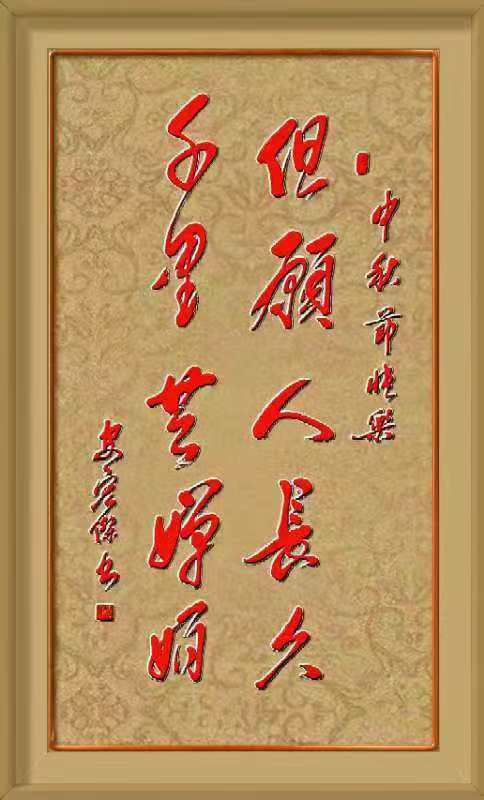 中秋节快樂
但願人長久
千里共嬋娟